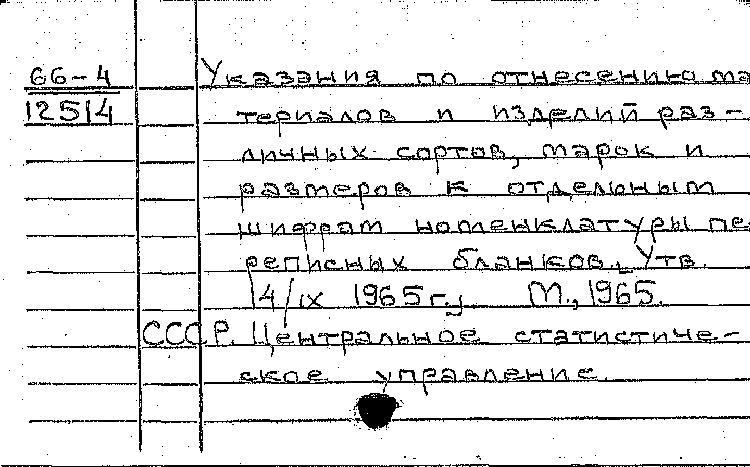 66-4
Указания по отнесению ма
12514
териалов и изделий раз-
личных сортов, марок и
размеров к отдельным
шифрам номенклатуры пе
реписных бланков. Утв.
14/IX 1965 г. М., 1965.
СССР. Центральное статистиче-
ское управление.